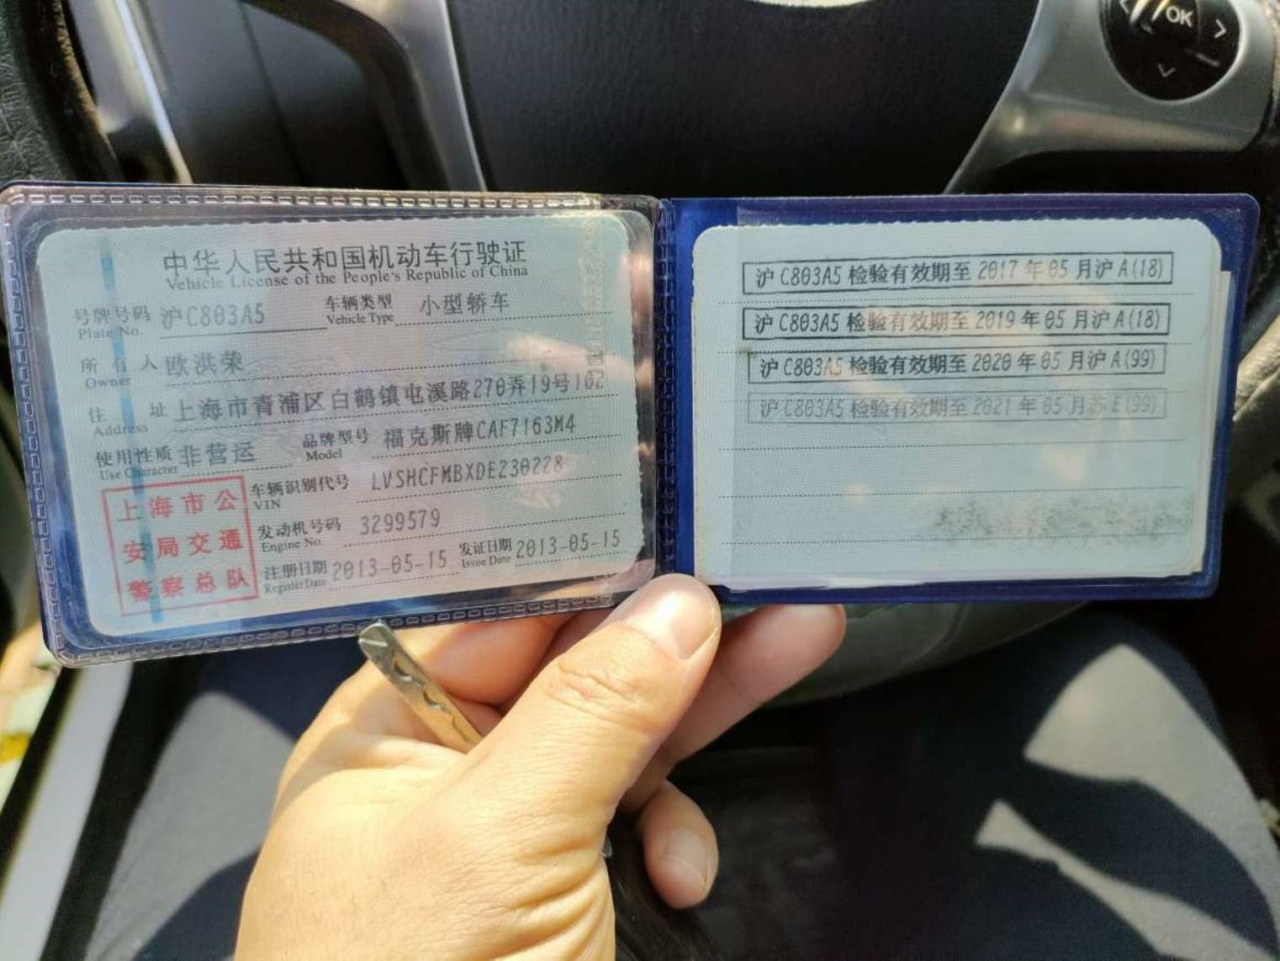 OK
中华人民共和国机动车行驶证
Vehicle License of the People's Republic of China
号牌号码 沪C803A5 车辆类型 小型轿车
Plate No. Vehicle Type
所有人 欧洪荣
Owner
住址 上海市青浦区白鹤镇屯溪路270弄19号102
Address
使用性质 非营运 品牌型号 福克斯牌CAF7163M4
Use Character Model
车辆识别代号 LVSHCFMBXDE230228
VIN
发动机号码 3299579
Engine No.
注册日期 2013-05-15 发证日期 2013-05-15
Register Date Issue Date
上海市公
安局交通
警察总队
沪C803A5 检验有效期至 2017年05月沪A(18)
沪C803A5 检验有效期至 2019年05月沪A(18)
沪C803A5 检验有效期至 2020年05月沪A(99)
沪C803A5 检验有效期至 2021年05月苏E(99)